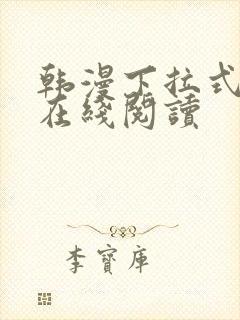 韩漫下拉式
在綫閱讀
李寶庫